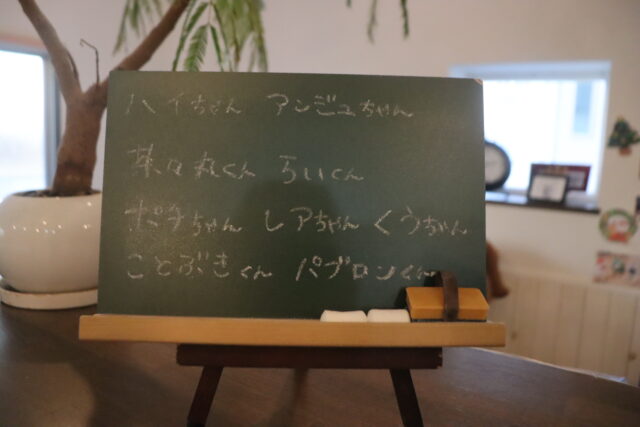 ハイちゃん アンジュちゃん
菜々丸くん らいくん
ポチちゃん レアちゃん くうちゃん
ことぶきくん パブロンくん